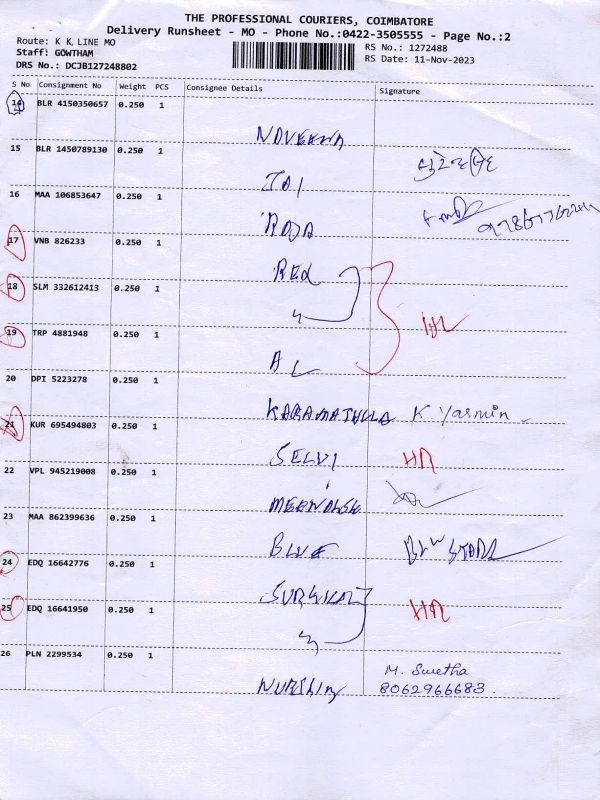 THE PROFESSIONAL COURIERS, COIMBATORE
Delivery Runsheet - MO - Phone No.:0422-3505555 - Page No.:2
Route: K K,LINE MO
Staff: GOWTHAM
DRS No.: DCJB127248802
RS No.: 1272488
RS Date: 11-Nov-2023
S No Consignment No Weight PCS Consignee Details Signature
14 BLR 4150350657 0.250 1
NAVEENA
15 BLR 1450789130 0.250 1
JAI
16 MAA 106853647 0.250 1
RAJA
17 VNB 826233 0.250 1
RED
18 SLM 332612413 0.250 1
19 TRP 4881948 0.250 1
AL
20 DPI 5223278 0.250 1
KARAMATHULLA K Yasmin
21 KUR 695494803 0.250 1
SELVI
22 VPL 945219008 0.250 1
23 MAA 862399636 0.250 1
BLUE BLUE STARR
24 EDQ 16642776 0.250 1
SURGICAL
25 EDQ 16641950 0.250 1
26 PLN 2299534 0.250 1
M. Swetha
8062966683